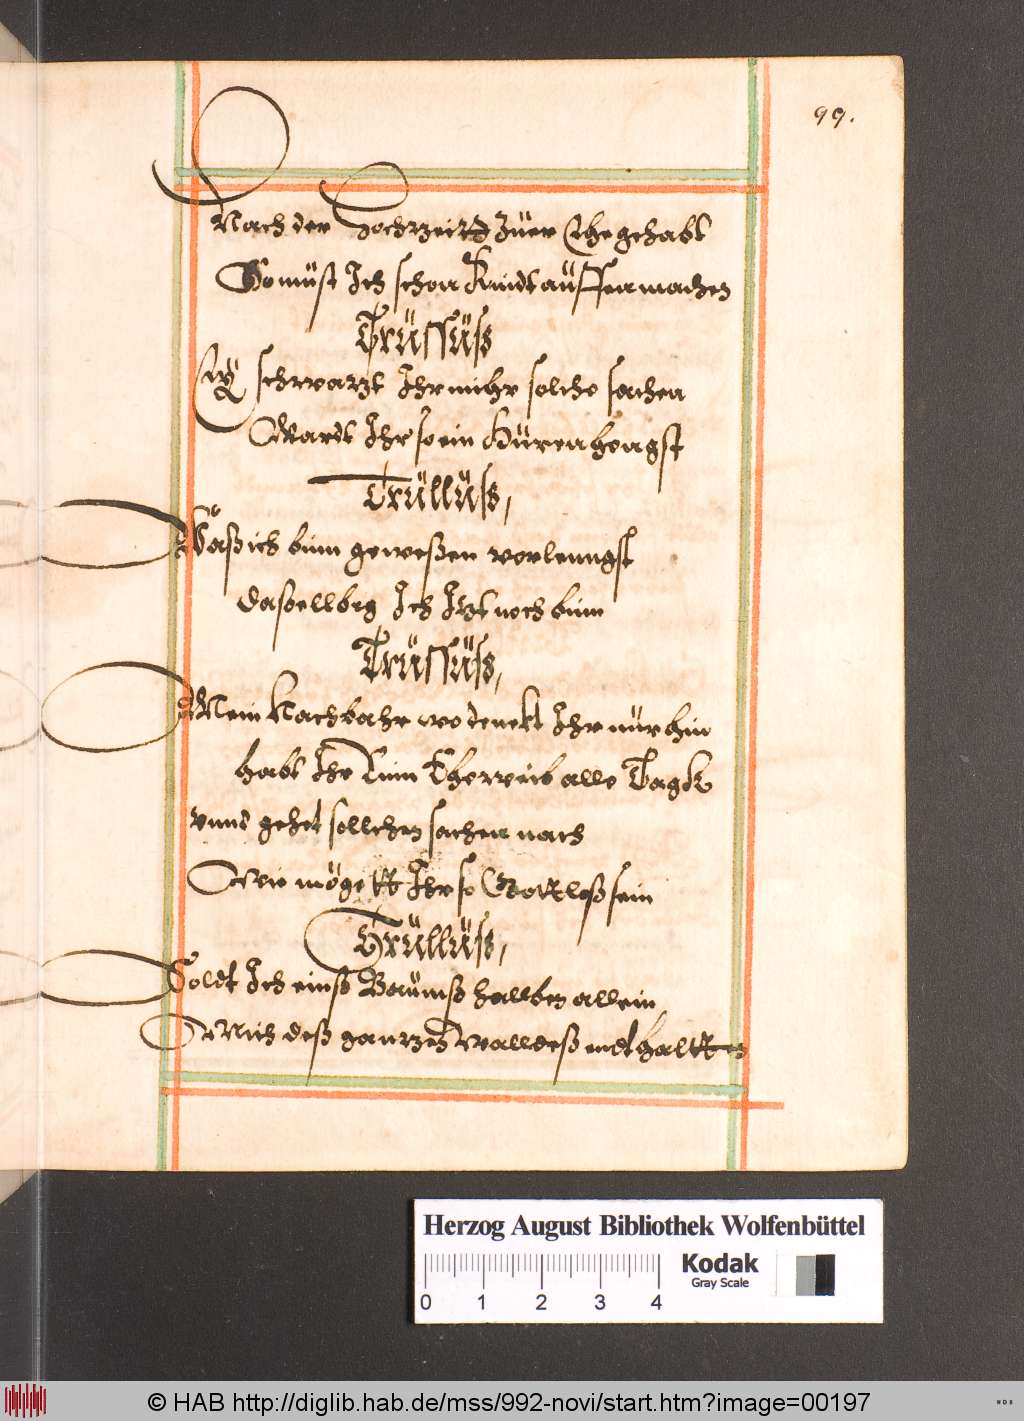 99.
Nach der Hochzeitt Zür Ehe gehabt
So müst Ich schon Kindt auffen machen
Trüssüß
Ey schwarzt Ihr mihr solche sachen
Wardt Ihr so ein Hürrenhengst
Trüllüß,
Waß ich binn geweßen vorlenngst
dasoellbig Ich Itzt noch binn
Trüssüß,
Mein Nachbahr wo denckt Ihr nür hin
habt Ihr Ein Eheweib alle Tagk
vnnd gehet sollchen sachen nach
Wie mögett Ihr so Gottloß sein
Trüllüß,
Soldt Ich einß Baümß hallben allein
Mich deß gantzen Walldeß endthaltten
Herzog August Bibliothek Wolfenbüttel
Kodak
Gray Scale
0 1 2 3 4
© HAB http://diglib.hab.de/mss/992-novi/start.htm?image=00197